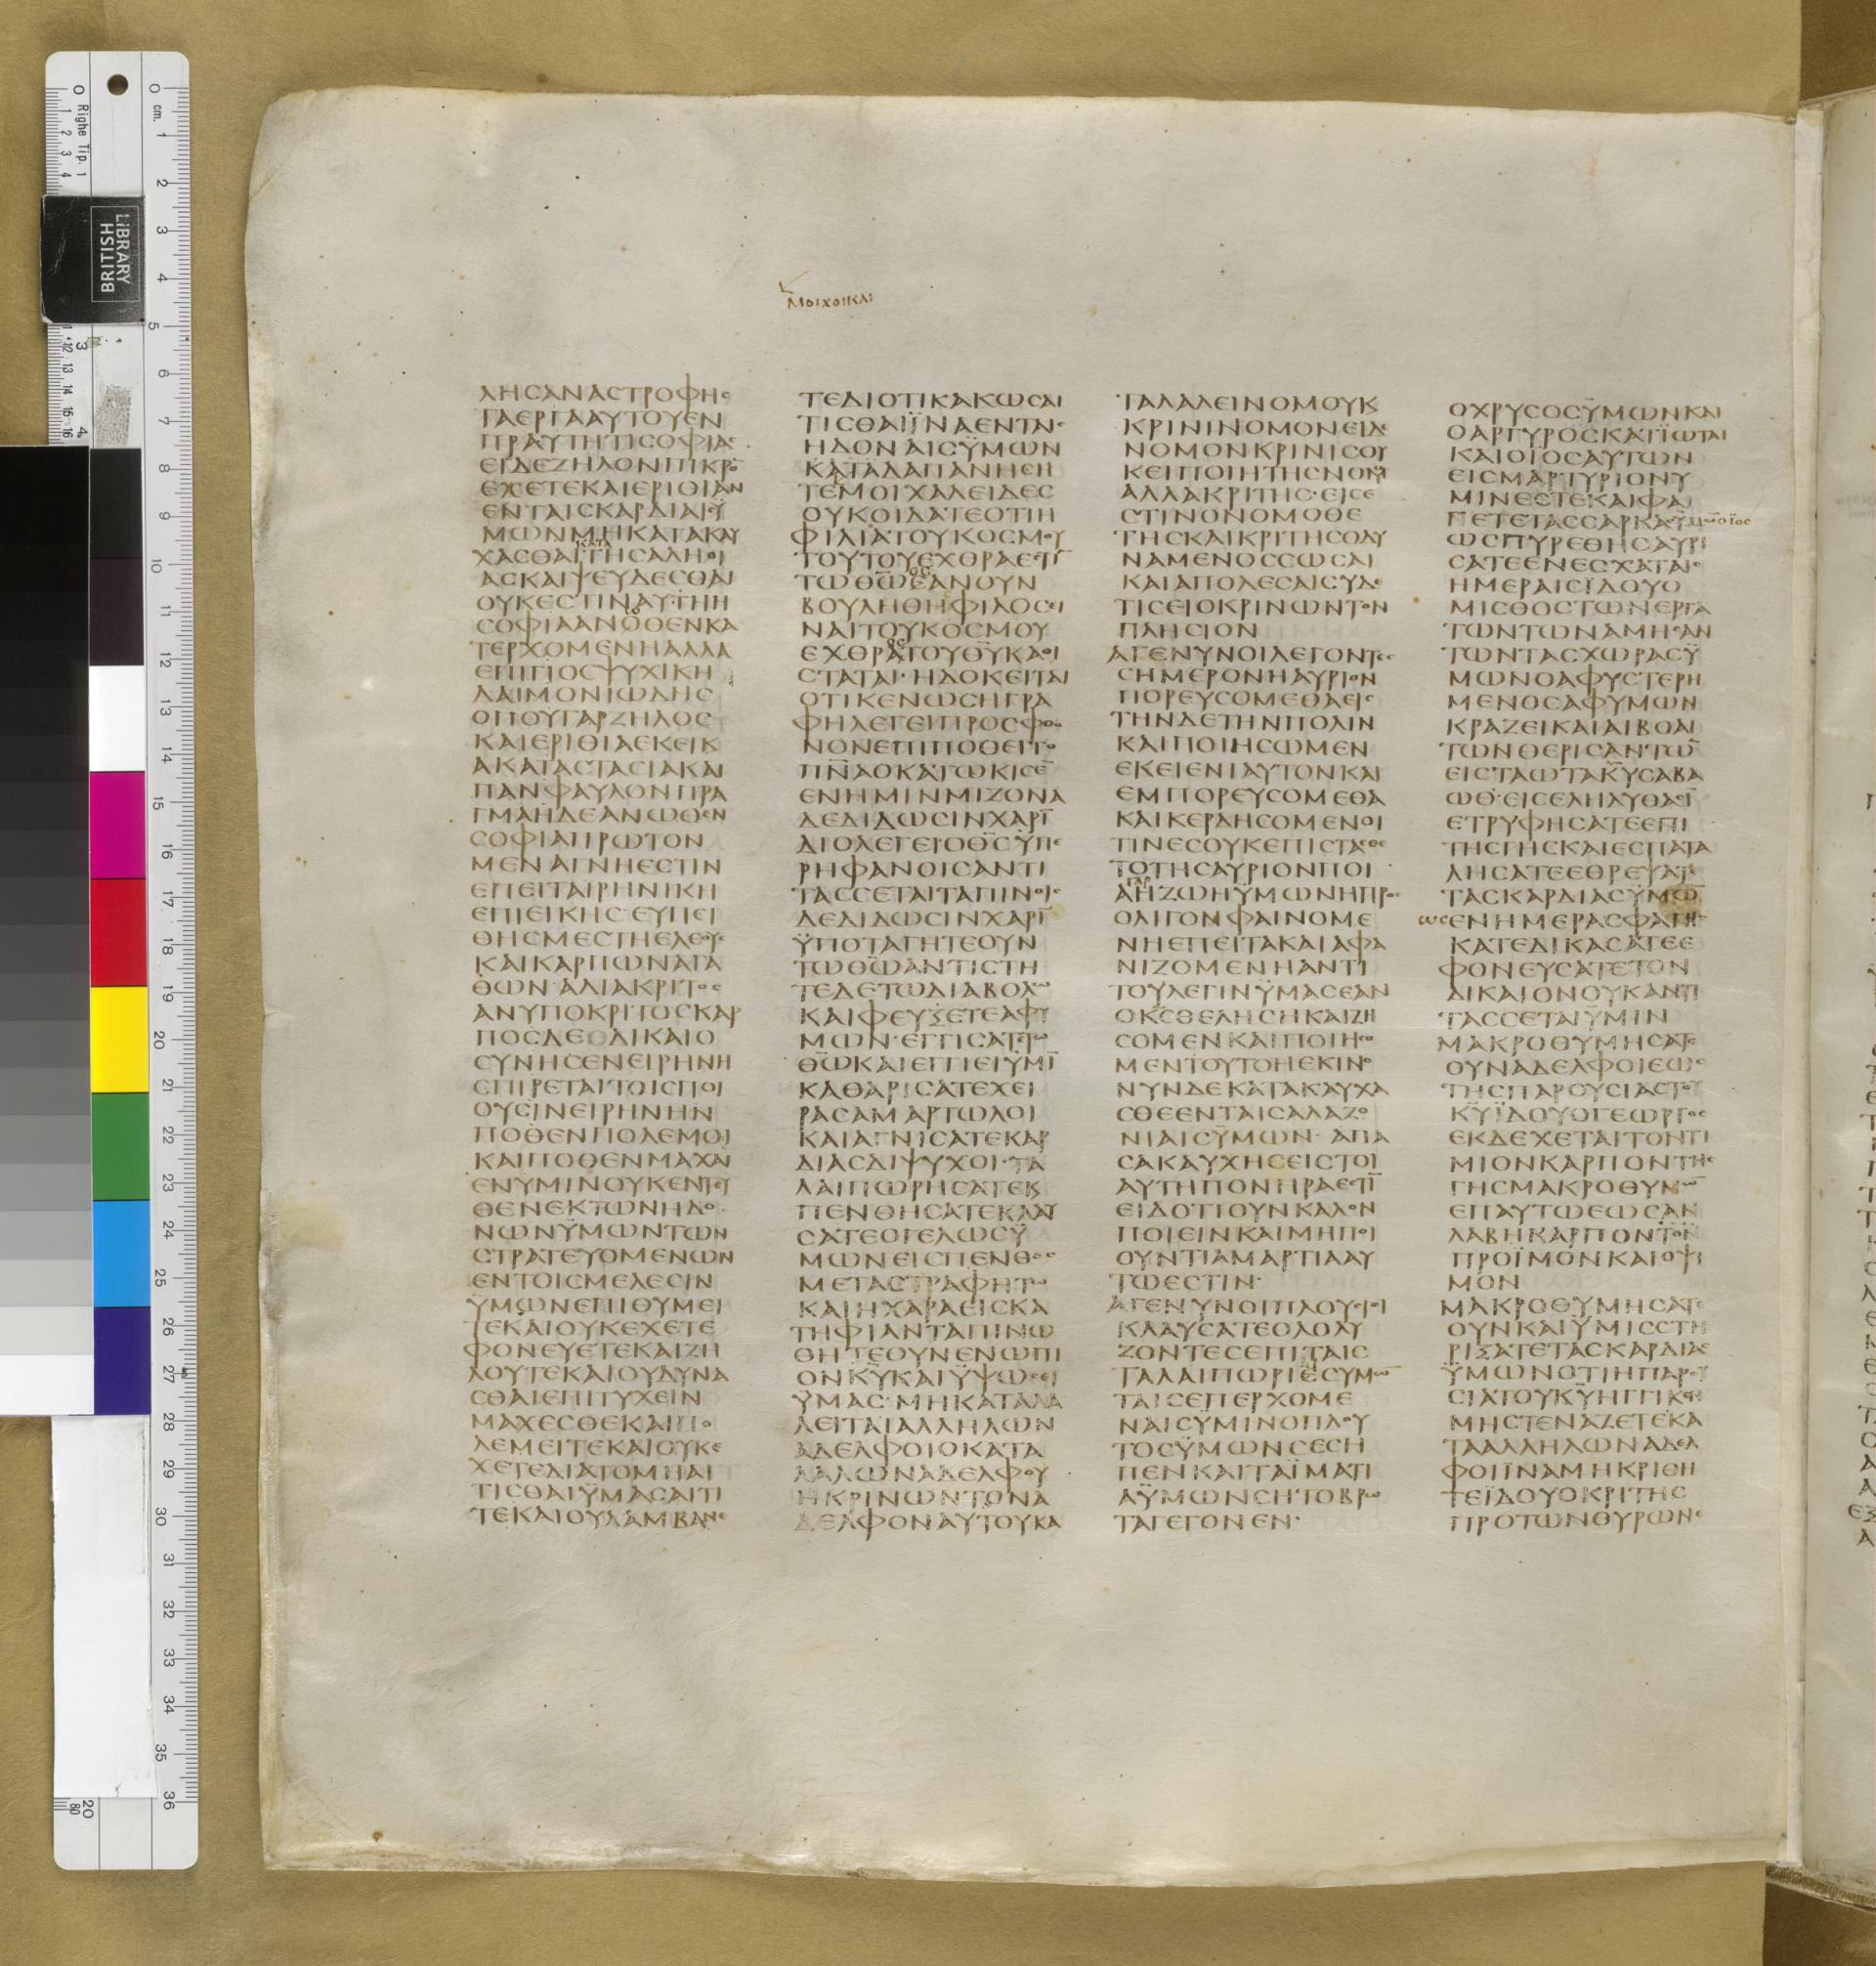 ΜΟΙΧΟΙΚΑΙ
ΛΗСΑΝΑСΤΡΟΦΗС
ΤΑΕΡΓΑΑΥΤΟΥΕΝ
ΠΡΑΥΤΗΤΙСΟΦΙΑС
ΕΙΔΕΖΗΛΟΝΠΙΚΡΟ̅
ΕΧΕΤΕΚΑΙΕΡΙΘΙΑΝ
ΕΝΤΑΙСΚΑΡΔΙΑΙΫ
ΜΩΝΜΗΚΑΤΑΚΑΥ
ΚΑΤΑ
ΧΑСΘΑΙΤΗСΑΛΗΘΙ
ΑСΚΑΙΨΕΥΔΕСΘΑΙ
ΟΥΚΕСΤΙΝΑΥΤΗΗ
СΟΦΙΑΑΝΟΘΕΝΚΑ
ΤΕΡΧΟΜΕΝΗΑΛΛΑ
ΕΠΙΓΙΟСΨΥΧΙΚΗ
ΔΑΙΜΟΝΙΩΔΗС
ΟΠΟΥΓΑΡΖΗΛΟС
ΚΑΙΕΡΙΘΙΑΕΚΕΙΚ
ΑΚΑΤΑСΤΑСΙΑΚΑΙ
ΠΑΝΦΑΥΛΟΝΠΡΑ
ΓΜΑΗΔΕΑΝΩΘΕΝ
СΟΦΙΑΠΡΩΤΟΝ
ΜΕΝΑΓΝΗΕСΤΙΝ
ΕΠΕΙΤΑΙΡΗΝΙΚΗ
ΕΠΙΕΙΚΗС·ΕΥΠΕΙ
ΘΗСΜΕСΤΗΕΛΕΟΥС
ΚΑΙΚΑΡΠΩΝΑΓΑ
ΘΩΝ·ΑΔΙΑΚΡΙΤΟС
ΑΝΥΠΟΚΡΙΤΟСΚΑΡ
ΠΟСΔΕΟΔΙΚΑΙΟ
СΥΝΗСΕΝΕΙΡΗΝΗ
СΠΙΡΕΤΑΙΤΟΙСΠΟΙ
ΟΥСΙΝΕΙΡΗΝΗΝ
ΠΟΘΕΝΠΟΛΕΜΟΙ
ΚΑΙΠΟΘΕΝΜΑΧΑΙ
ΕΝΥΜΙΝΟΥΚΕΝΤΕΥ
ΘΕΝΕΚΤΩΝΗΔΟ
ΝΩΝΫΜΩΝΤΩΝ
СΤΡΑΤΕΥΟΜΕΝΩΝ
ΕΝΤΟΙСΜΕΛΕСΙΝ
ΫΜΩΝΕΠΙΘΥΜΕΙ
ΤΕΚΑΙΟΥΚΕΧΕΤΕ
ΦΟΝΕΥΕΤΕΚΑΙΖΗ
ΛΟΥΤΕΚΑΙΟΥΔΥΝΑ
СΘΑΙΕΠΙΤΥΧΕΙΝ
ΜΑΧΕСΘΕΚΑΙΠΟ
ΛΕΜΕΙΤΕΚΑΙΟΥΚΕ
ΧΕΤΕΔΙΑΤΟΜΗΑΙ
ΤΙСΘΑΙΫΜΑСΑΙΤΙ
ΤΕΚΑΙΟΥΛΑΜΒΑΝΕ
ΤΕΔΙΟΤΙΚΑΚΩСΑΙ
ΤΙСΘΑΙΪΝΑΕΝΤΑΙС
ΗΔΟΝΑΙСΫΜΩΝ
ΚΑΤΑΔΑΠΑΝΗСΗ
ΤΕΜΟΙΧΑΛΕΙΔΕС
ΟΥΚΟΙΔΑΤΕΟΤΙΗ
ΦΙΛΙΑΤΟΥΚΟСΜΟΥ
ΤΟΥΤΟΥΕΧΘΡΑΕСΤΙ̅
ΤΩΘ̅Ω̅ΕΑΝΟΥΝ
ΒΟΥΛΗΘΗΦΙΛΟСΕΙ
ΝΑΙΤΟΥΚΟСΜΟΥ
ΕΧΘΡΑΤΟΥΘ̅Υ̅ΚΑΘΙ
СΤΑΤΑΙ·ΗΔΟΚΕΙΤΑΙ
ΟΤΙΚΕΝΩСΗΓΡΑ
ΦΗΛΕΓΕΙΠΡΟСΦΘΟ
ΝΟΝΕΠΙΠΟΘΕΙΤΟ
Π̅Ν̅ΑΟΚΑΤΩΚΙСΕ̅
ΕΝΗΜΙΝΜΙΖΟΝΑ
ΔΕΔΙΔΩСΙΝΧΑΡΙ̅
ΔΙΟΛΕΓΕΙΟΘ̅С̅ΫΠΕ
ΡΗΦΑΝΟΙСΑΝΤΙ
ΤΑССΕΤΑΙΤΑΠΙΝΟΙС
ΔΕΔΙΔΩСΙΝΧΑΡΙ̅
ΫΠΟΤΑΓΗΤΕΟΥΝ
ΤΩΘ̅Ω̅ΑΝΤΙСΤΗ
ΤΕΔΕΤΩΔΙΑΒΟΛΩ
ΚΑΙΦΕΥΞΕΤΕΑΦΥ
ΜΩΝ·ΕΓΓΙСΑΤΕΤΩ
Θ̅Ω̅ΚΑΙΕΓΓΙΕΙΫΜΙ̅
ΚΑΘΑΡΙСΑΤΕΧΕΙ
ΡΑСΑΜΑΡΤΩΛΟΙ
ΚΑΙΑΓΝΙСΑΤΕΚΑΡ
ΔΙΑСΔΙΨΥΧΟΙ·ΤΑ
ΛΑΙΠΩΡΗСΑΤΕΚ
ΠΕΝΘΗСΑΤΕΚΛΑΥ
СΑΤΕΟΓΕΛΩСΫ
ΜΩΝΕΙСΠΕΝΘΟС
ΜΕΤΑСΤΡΑΦΗΤΩ
ΚΑΙΗΧΑΡΑΕΙСΚΑ
ΤΗΦΙΑΝΤΑΠΙΝΩ
ΘΗΤΕΟΥΝΕΝΩΠΙ
ΟΝΚ̅Υ̅ΚΑΙΫΨΩСΕΙ
ΫΜΑС·ΜΗΚΑΤΑΛΑ
ΛΕΙΤΑΙΑΛΛΗΛΩΝ
ΑΔΕΛΦΟΙΟΚΑΤΑ
ΛΑΛΩΝΑΔΕΛΦΟΥ
ΗΚΡΙΝΩΝΤΟΝΑ
ΔΕΛΦΟΝΑΥΤΟΥΚΑ
ΤΑΛΑΛΕΙΝΟΜΟΥΚ
ΚΡΙΝΙΝΟΜΟΝΕΙΔΕ
ΝΟΜΟΝΚΡΙΝΙСΟΥ
ΚΕΙΠΟΙΗΤΗСΝΟΜΟΥ
ΑΛΛΑΚΡΙΤΗС·ΕΙСΕ
СΤΙΝΟΝΟΜΟΘΕ
ΤΗСΚΑΙΚΡΙΤΗСΟΔΥ
ΝΑΜΕΝΟССΩСΑΙ
ΚΑΙΑΠΟΛΕСΑΙСΥΔΕ
ΤΙСΕΙΟΚΡΙΝΩΝΤΟΝ
ΠΛΗСΙΟΝ
ΑΓΕΝΥΝΟΙΛΕΓΟΝΤΕС
СΗΜΕΡΟΝΗΑΥΡΙΟΝ
ΠΟΡΕΥСΟΜΕΘΑΕΙС
ΤΗΝΔΕΤΗΝΠΟΛΙΝ
ΚΑΙΠΟΙΗСΩΜΕΝ
ΕΚΕΙΕΝΙΑΥΤΟΝΚΑΙ
ΕΜΠΟΡΕΥСΟΜΕΘΑ
ΚΑΙΚΕΡΔΗСΟΜΕΝΟΙ
ΤΙΝΕСΟΥΚΕΠΙСΤΑСΘΕ
ΤΟΤΗСΑΥΡΙΟΝΠΟΙ
ΓΑΡ
ΑΗΖΩΗΫΜΩΝΗΠΡΟС
ΟΛΙΓΟΝΦΑΙΝΟΜΕ
ΝΗΕΠΕΙΤΑΚΑΙΑΦΑ
ΝΙΖΟΜΕΝΗΑΝΤΙ
ΤΟΥΛΕΓΙΝΫΜΑСΕΑΝ
ΟΚ̅С̅ΘΕΛΗСΗΚΑΙΖΗ
СΟΜΕΝΚΑΙΠΟΙΗСΩ
ΜΕΝΤΟΥΤΟΗΕΚΙΝΟ
ΝΥΝΔΕΚΑΤΑΚΑΥΧΑ
СΘΕΕΝΤΑΙСΑΛΑΖΟ
ΝΙΑΙСΫΜΩΝ·ΑΠΑ
СΑΚΑΥΧΗСΕΙСΤΟΙ
ΑΥΤΗΠΟΝΗΡΑΕСΤΙ̅
ΕΙΔΟΤΙΟΥΝΚΑΛΟΝ
ΠΟΙΕΙΝΚΑΙΜΗΠΟΙ
ΟΥΝΤΙΑΜΑΡΤΙΑΑΥ
ΤΩΕСΤΙΝ·
ΑΓΕΝΥΝΟΙΠΛΟΥСΙΟΙ
ΚΛΑΥСΑΤΕΟΛΟΛΥ
ΖΟΝΤΕСΕΠΙΤΑΙС
ΤΑΛΑΙΠΩΡΙΕСΥΜΩ̅
ΤΑΙСΕΠΕΡΧΟΜΕ
ΝΑΙСΥΜΙΝΟΠΛΟΥ
ΤΟСΫΜΩΝСΕСΗ
ΠΕΝΚΑΙΤΑΪΜΑΤΙ
ΑΫΜΩΝСΗΤΟΒΡΩ
ΤΑΓΕΓΟΝΕΝ·
ΟΧΡΥСΟСΫΜΩΝΚΑΙ
ΟΑΡΓΥΡΟСΚΑΤΪΩΤΑΙ
ΚΑΙΟΪΟСΑΥΤΩΝ
ΕΙСΜΑΡΤΥΡΙΟΝΥ
ΜΙΝΕСΤΕΚΑΙΦΑ
ΓΕΤΕΤΑССΑΡΚΑСΥΜΩ̅ΟΪΟС
ΩСΠΥΡΕΘΗСΑΥΡΙ
СΑΤΕΕΝΕСΧΑΤΑΙС
ΗΜΕΡΑΙСΪΔΟΥΟ
ΜΙСΘΟСΤΩΝΕΡΓΑ
ΤΩΝΤΩΝΑΜΗСΑΝ
ΤΩΝΤΑСΧΩΡΑСΫ
ΜΩΝΟΑΦΥСΤΕΡΗ
ΜΕΝΟСΑΦΥΜΩΝ
ΚΡΑΖΕΙΚΑΙΑΙΒΟΑΙ
ΤΩΝΘΕΡΙСΑΝΤΩ̅
ΕΙСΤΑΩΤΑΚ̅Υ̅СΑΒΑ
ΩΘ·ΕΙСΕΛΗΛΥΘΑСΙ̅
ΕΤΡΥΦΗСΑΤΕΕΠΙ
ΤΗСΓΗСΚΑΙΕСΠΑΤΑ
ΛΗСΑΤΕΕΘΡΕΨΑΤΕ
ΤΑСΚΑΡΔΙΑСΫΜΩ̅
ΩСΕΝΗΜΕΡΑСΦΑΓΗС
ΚΑΤΕΔΙΚΑСΑΤΕΕ
ΦΟΝΕΥСΑΤΕΤΟΝ
ΔΙΚΑΙΟΝΟΥΚΑΝΤΙ
ΤΑССΕΤΑΙΫΜΙΝ
ΜΑΚΡΟΘΥΜΗСΑΤΕ
ΟΥΝΑΔΕΛΦΟΙΕΩС
ΤΗСΠΑΡΟΥСΙΑСΤΟΥ
Κ̅Υ̅ΪΔΟΥΟΓΕΩΡΓΟС
ΕΚΔΕΧΕΤΑΙΤΟΝΤΙ
ΜΙΟΝΚΑΡΠΟΝΤΗС
ΓΗСΜΑΚΡΟΘΥΜΩ̅
ΕΠΑΥΤΩΕΩСΑΝ
ΛΑΒΗΚΑΡΠΟΝΤΟΝ
ΠΡΟΪΜΟΝΚΑΙΟΨΙ
ΜΟΝ
ΜΑΚΡΟΘΥΜΗСΑΤΕ
ΟΥΝΚΑΙΫΜΙССΤΗ
ΡΙΞΑΤΕΤΑСΚΑΡΔΙΑС
ΫΜΩΝΟΤΙΗΠΑΡΟΥ
СΙΑΤΟΥΚ̅Υ̅ΗΓΓΙΚΕΝ
ΜΗСΤΕΝΑΖΕΤΕΚΑ
ΤΑΑΛΛΗΛΩΝΑΔΕΛ
ΦΟΙΪΝΑΜΗΚΡΙΘΗ
ΤΕΪΔΟΥΟΚΡΙΤΗС
ΠΡΟΤΩΝΘΥΡΩΝ
BRITISH
LIBRARY